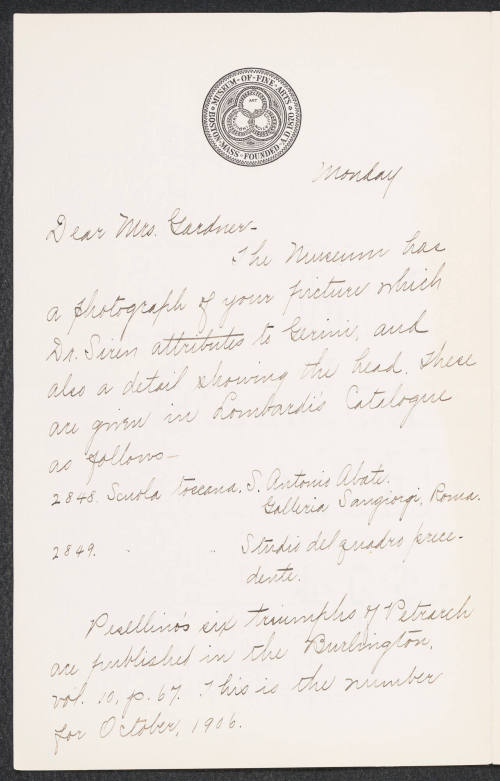 MUSEUM · OF · FINE · ARTS
BOSTON · MASS · FOUNDED · A.D. 1870
ART
Monday
Dear Mrs. Gardner–
The Museum has
a photograph of your picture which
Dr. Siren attributes to Gerini, and
also a detail showing the head. These
are given in Lombardi's Catalogue
as follows–
2848. Scuola toscana. S. Antonio Abate.
Galleria Sangiorgi, Roma.
2849. " " Studio del quadro prece-
dente.
Pesellino's six triumphs of Petrarch
are published in the Burlington,
vol. 10, p. 67. This is the number
for October, 1906.